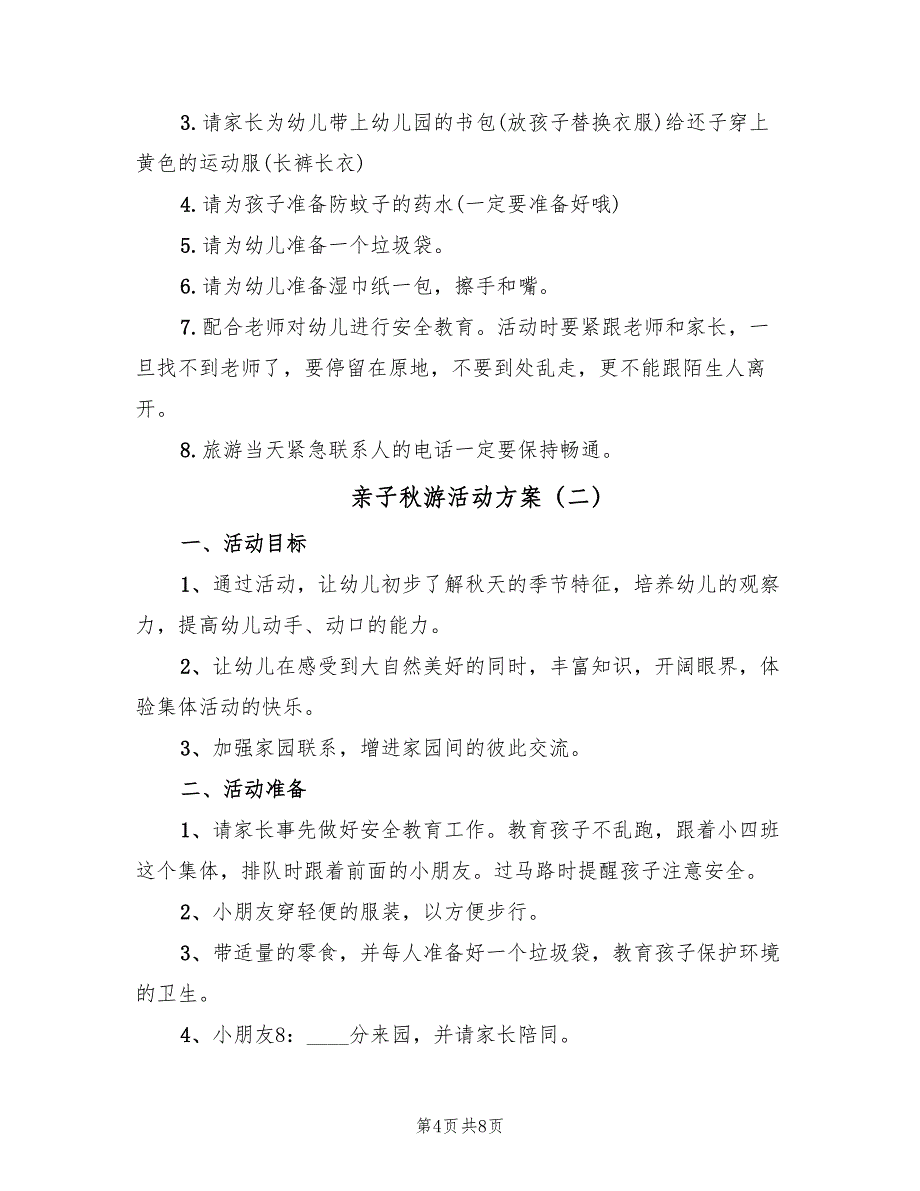 3.请家长为幼儿带上幼儿园的书包(放孩子替换衣服)给还子穿上
黄色的运动服(长裤长衣)
4.请为孩子准备防蚊子的药水(一定要准备好哦)
5.请为幼儿准备一个垃圾袋。
6.请为幼儿准备湿巾纸一包，擦手和嘴。
7.配合老师对幼儿进行安全教育。活动时要紧跟老师和家长，一
旦找不到老师了，要停留在原地，不要到处乱走，更不能跟陌生人离
开。
8.旅游当天紧急联系人的电话一定要保持畅通。
亲子秋游活动方案（二）
一、活动目标
1、通过活动，让幼儿初步了解秋天的季节特征，培养幼儿的观察
力，提高幼儿动手、动口的能力。
2、让幼儿在感受到大自然美好的同时，丰富知识，开阔眼界，体
验集体活动的快乐。
3、加强家园联系，增进家园间的彼此交流。
二、活动准备
1、请家长事先做好安全教育工作。教育孩子不乱跑，跟着小四班
这个集体，排队时跟着前面的小朋友。过马路时提醒孩子注意安全。
2、小朋友穿轻便的服装，以方便步行。
3、带适量的零食，并每人准备好一个垃圾袋，教育孩子保护环境
的卫生。
4、小朋友8：____分来园，并请家长陪同。
第4页共8页